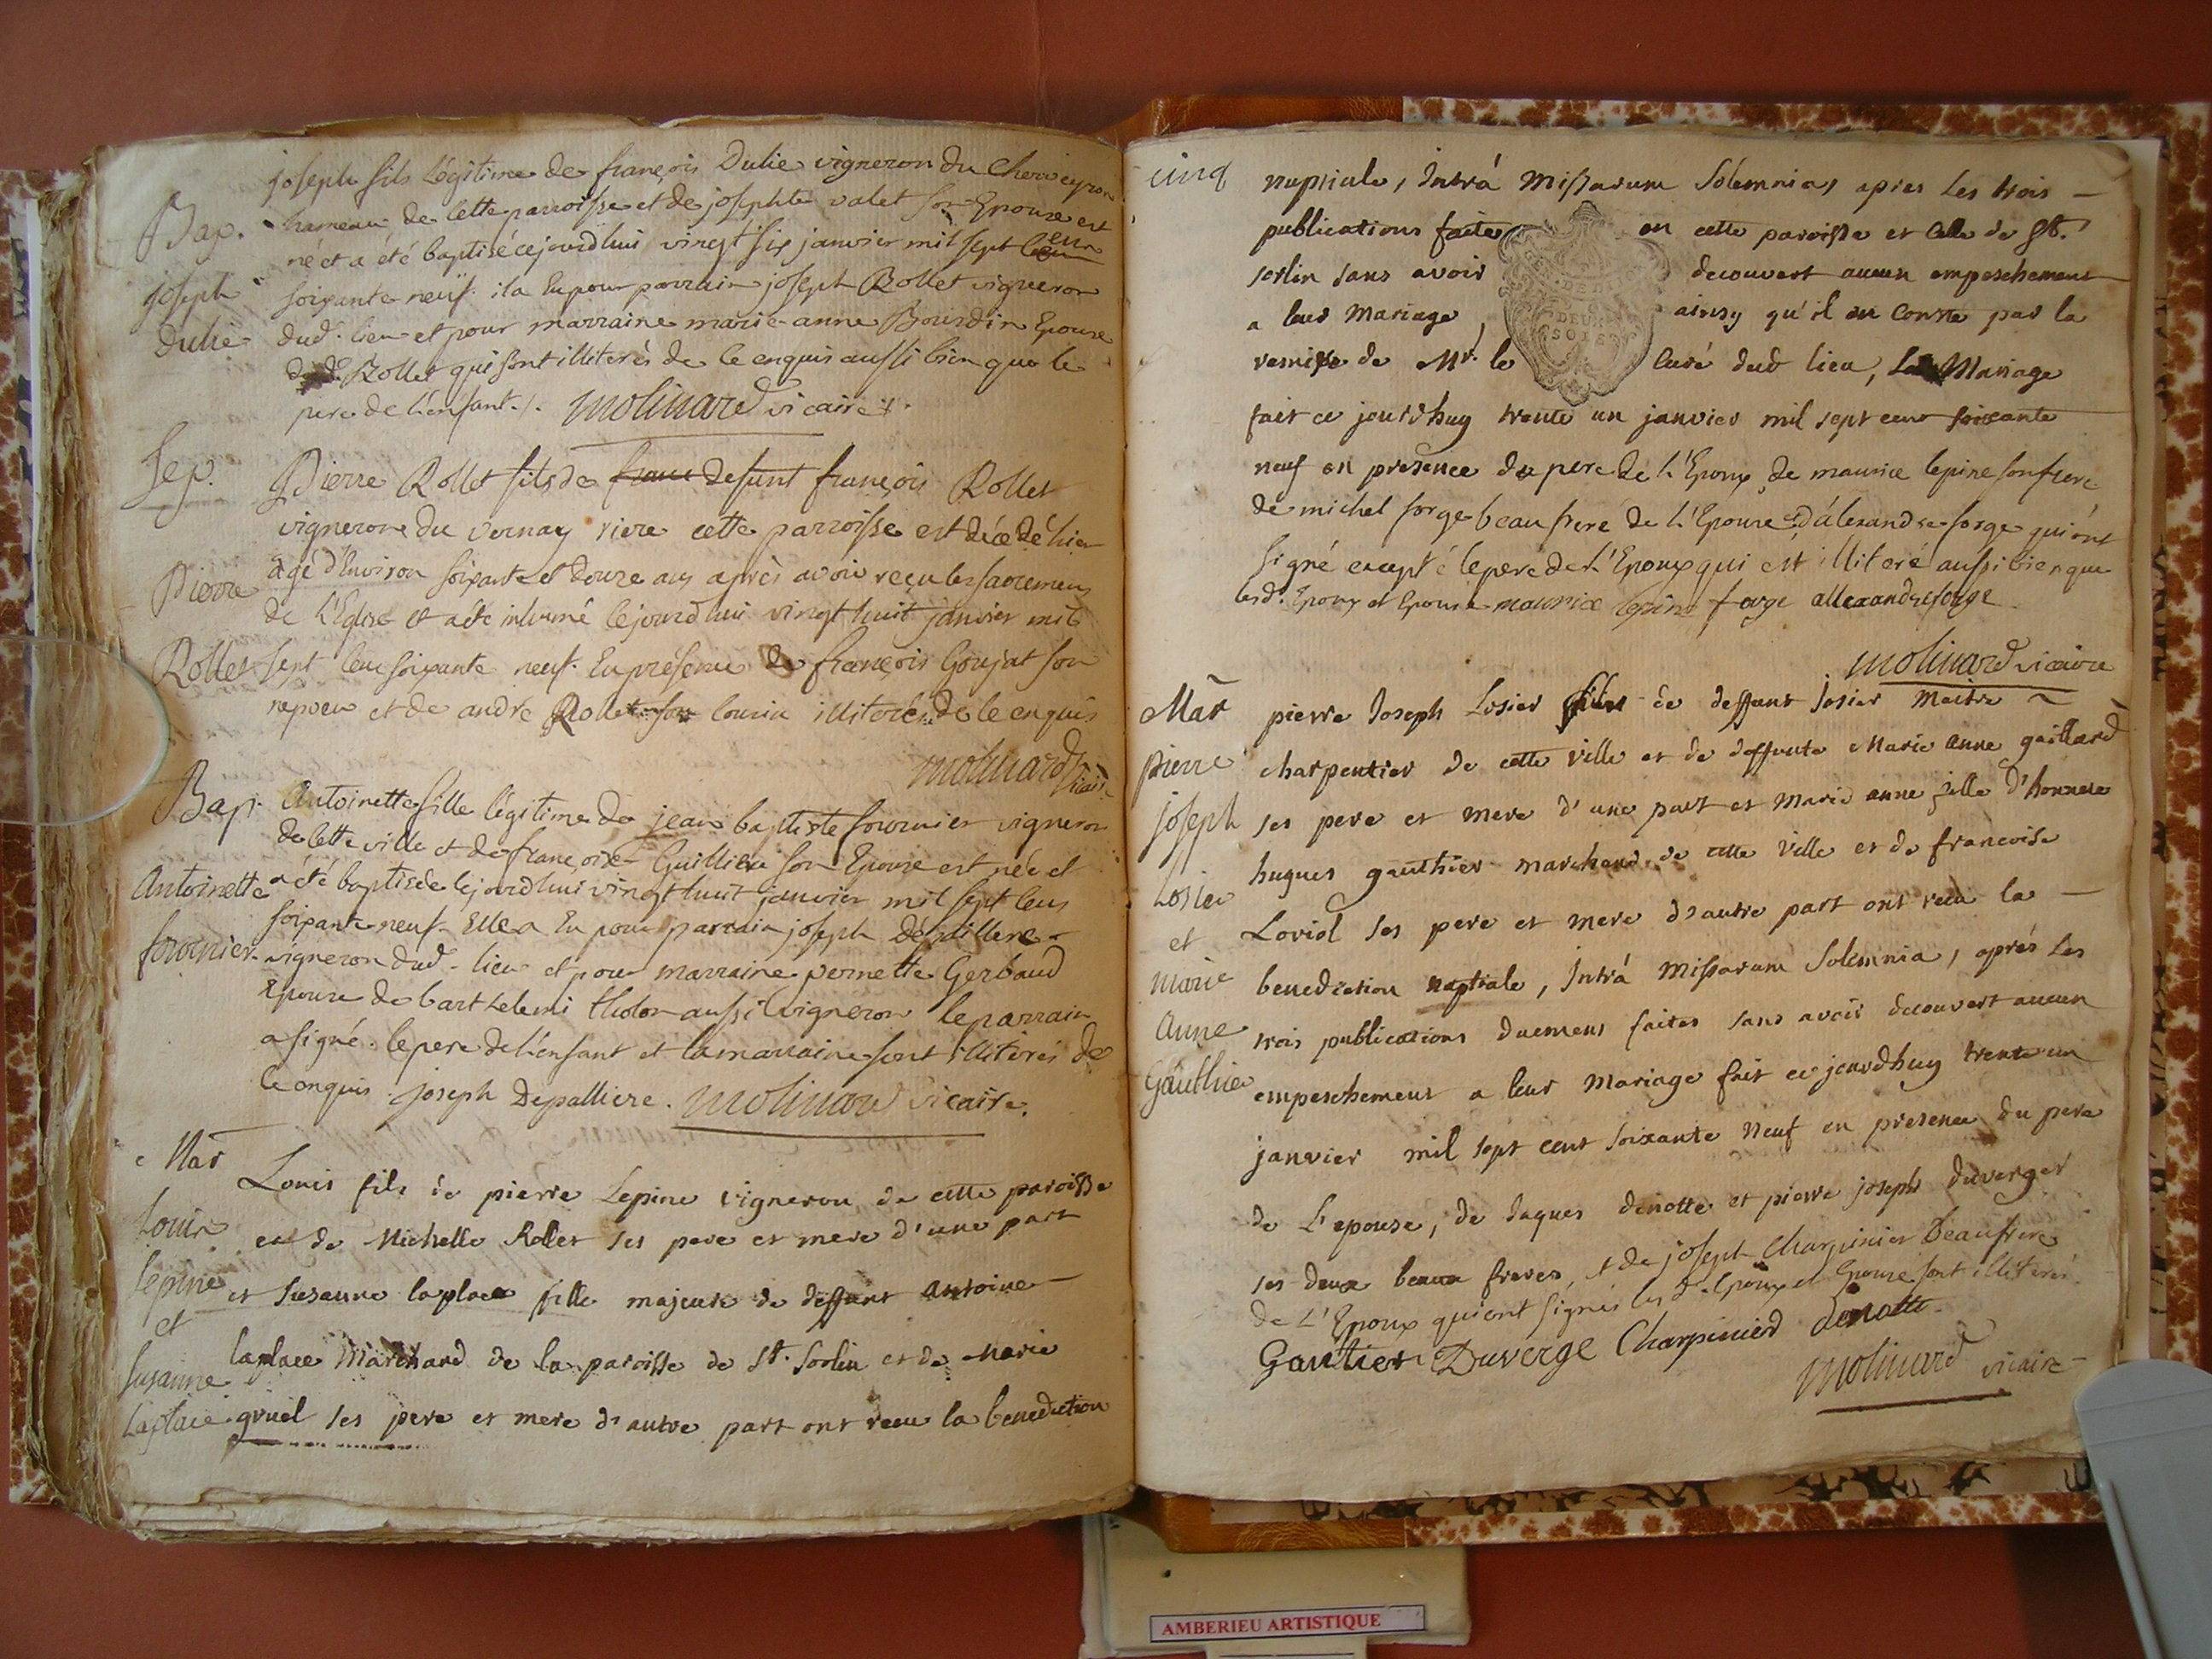 Bap.
joseph
Dulie
joseph fils Légitime de françois Dulie vigneron du
hameau de cette parroisse et de josephte valet son Epouse est
né et a été baptisé cejourd'hui vingt six janvier mil sept cent
soixante neuf. il a Eu pour parrain joseph Rollet vigneron
dud. lieu et pour marraine marie-anne Bourdin Epouse
dud. Rollet qui sont illiterés de ce enquis aussi bien que le
pere de l'enfant ./. molinard vicaire
Sep.
Pierre
Rollet
Pierre Rollet fils de franc defunt françois Rollet
vigneron du vernay riere cette parroisse est décedé hier
agé d'Environ soixante et douze ans après avoir reçu les sacremens
de l'Eglise et a été inhumé cejourd'hui vingt huit janvier mil
sept cent soixante neuf. En présence de françois Goujat son
nepveu et de andré Rollet son cousin illiterés de ce enquis
molinard vicaire
Bap.
Antoinette
fournier
Antoinette fille légitime de jean baptiste fournier vigneron
de cette ville et de françoise Guilliere son Epouse est née et
a été baptisée cejourd'hui vingt huit janvier mil sept cens
soixante neuf. Elle a Eu pour parrain joseph Dépallière
vigneron dud. lieu et pour marraine pernette Gerbaud
Epouse de barthelemi tholon aussi vigneron le parrain
a signé. le pere de l'enfant et la marraine sont illiterés de
ce enquis. joseph Depalliere. molinard vicaire.
Mar
Louis
lepine
et
susanne
Laplace
Louis fils de pierre Lepine vigneron de cette paroisse
et de Michelle Rollet ses pere et mere d'une part
et susanne laplace fille majeure de deffunt antoine
laplace Marchand de la paroisse de St. Sorlin et de Marie
gruel ses pere et mere d'autre part ont recu la benediction
cinq
nuptiale, Intrá Missarum Solemnia, apres les trois
publications faites en cette paroisse et celle de St.
sorlin sans avoir decouvert aucun empeschement
a leur Mariage, ainsy qu'il en conste par la
remise de Mr. le curé dud lieu, Mariage
fait ce jourdhuy trente un janvier mil sept cent soixante
neuf en presence du pere de L'Epoux, de maurice lepine son frere
de michel forge beau frere de L'Epouse et d'alexandre forge qui ont
signé excepté le pere de L'Epoux qui est illiteré aussi bien que
lesd. Epoux et Epouse maurice lepine forge allexandre forge
molinard vicaire
Mar
pierre
joseph
Losier
et
marie
Anne
Gauthier
pierre Joseph Losier fils de deffunt losier Maitre
charpentier de cette ville et de deffunte Marie anne gaillard
ses pere et mere d'une part et Marie anne fille d'honnete
hugues gauthier marchand de cette Ville et de francoise
Loviol ses pere et mere d'autre part ont recu la
benediction nuptiale, Intrá Missarum Solemnia, aprés les
trois publications duement faites sans avoir decouvert aucun
empeschement a leur Mariage fait ce jourdhuy trente un
janvier mil sept cent soixante neuf en presence du pere
de L'epouse, de Jaques denotte et pierre joseph duverger
ses deux beaux freres, et de joseph Charpinier beaufrere
de L'Epoux qui ont signés les d. Epoux et Epouse sont illiterés
Gautier Duverge Charpinier denotte
molinard vicaire
AMBERIEU ARTISTIQUE